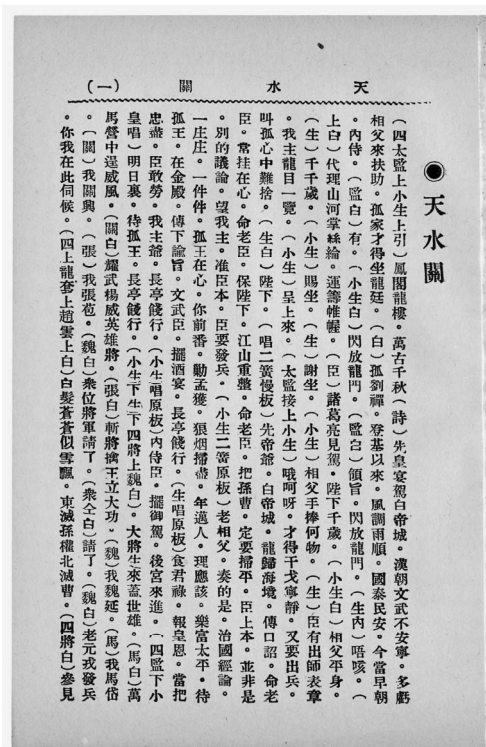 天水關 (一)
●天水關
(四太監上小生上引)鳳閣龍樓。萬古千秋(詩)先皇宴駕白帝城。漢朝文武不安寧。多虧
相父來扶助。孤家才得坐龍廷。(白)孤劉禪。登基以來。風調雨順。國泰民安。今當早朝
。內侍。(監白)有。(小生白)閃放龍門。(監白)領旨。閃放龍門。(生內)唔咳。(
上白)代理山河掌絲綸。運籌帷幄。(臣)諸葛亮見駕。陛下千歲。(小生白)相父平身。
(生)千千歲。(小生)賜坐。(生)謝坐。(小生)相父手捧何物。(生)臣有出師表章
。我主龍目一覽。(小生)呈上來。(太監接上小生)哦呵呀。才得干戈寧靜。又要出兵。
叫孤心中難捨。(生白)陛下。(唱二簧慢板)先帝爺。白帝城。龍歸海境。傳口詔。命老
臣。常挂在心。命老臣。保陛下。江山重整。命老臣。把孫曹。定要掃平。臣上本。並非是
。別的議論。望我主。准臣本。臣要發兵。(小生二簧原板)老相父。奏的是。治國經論。
一庄庄。一件件。孤王在心。你前番。勦孟獲。狼烟掃盡。年邁人。理應該。樂富太平。待
孤王。在金殿。傳下諭旨。文武臣。擺酒宴。長亭餞行。(生唱原板)食君祿。報皇恩。當把
忠盡。臣敢勞。我主爺。長亭餞行。(小生唱原板)內侍臣。擺御駕。後宮來進。(四監下小
皇唱)明日裏。待孤王。長亭餞行。(小生下生下四將上魏白)。大將生來蓋世雄。(馬白)萬
馬營中逞威風。(關白)耀武楊威英雄將。(張白)斬將擒王立大功。(魏)我魏延。(馬)我馬岱
。(關)我關興。(張)我張苞。(魏白)衆位將軍請了。(衆仝白)請了。(魏白)老元戎發兵
。你我在此伺候。(四上龍套上趙雲上白)白髮蒼蒼似雪飄。東滅孫權北滅曹。(四將白)參見